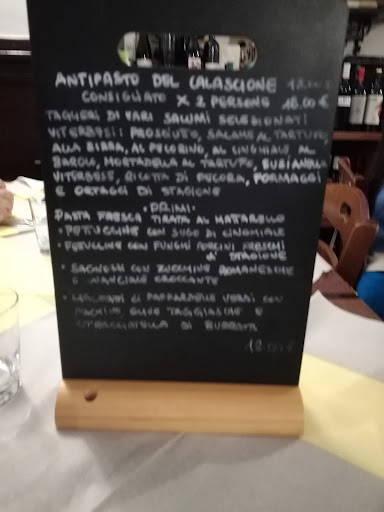 ANTIPASTO DEL CALASCIONE 13.00 €
CONSIGLIATO X 2 PERSONE 18.00 €
TAGLIERI DI VARI SALUMI SELEZIONATI
VITERBESI: PROSCIUTO, SALAME AL TARTUFO
ALLA BIRRA, AL PECORINO, AL CINGHIALE AL
BAROLO, MORTADELLA AL TARTUFO, SUSIANELLA
VITERBESE, RICOTA DI PECORA, FORMAGGI
E ORTAGGI DI STAGIONE
• PRIMI •
PASTA FRESCA TIRATA AL MATARELLO
• FETUCCINE CON SUGO DI CINGHIALE
• FETUCCINE CON FUNGHI PORCINI FRESCHI
DI STAGIONE
• CON ZUCCHINE ROMANESCHE
E GUANCIALE CROCCANTE
• DI PAPPARDELLE VERDI CON
OLIVE TAGGIASCHE E
STRACCIATELLA DI BURRATA
12.00 €